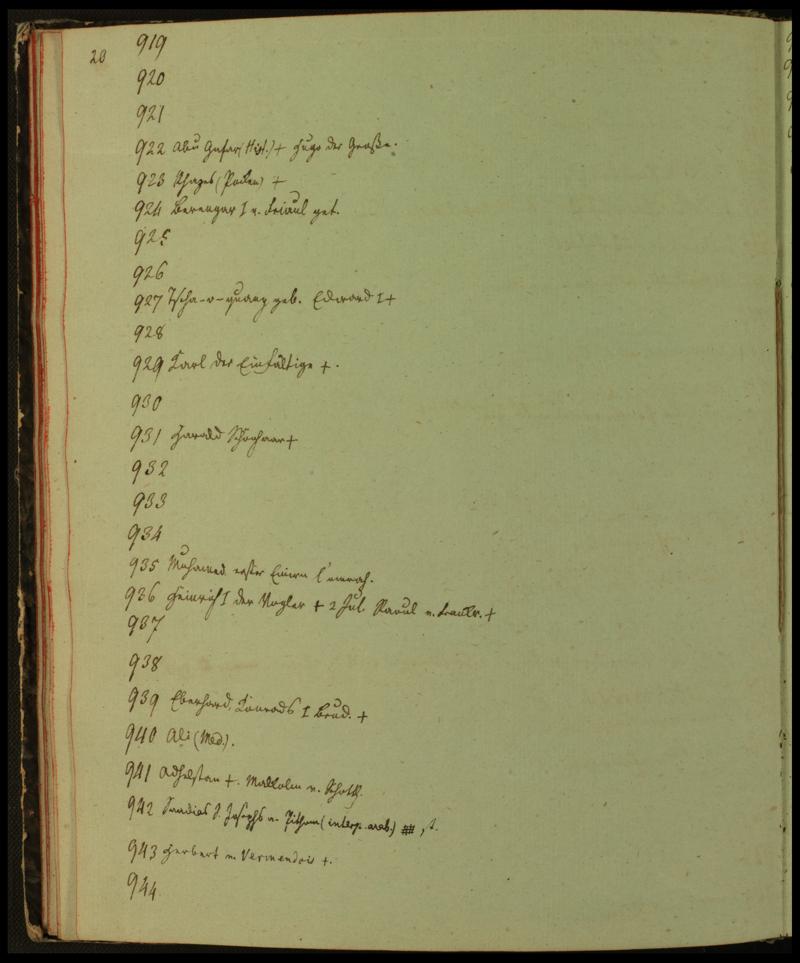 28
919
920
921
922 Abu Gafar (Hist.) + Hugo der Große.
923 Rhazes (Pocken) +
924 Berengar I v. Friaul get.
925
926
927 Tscha-o-quang geb. Edward I +
928
929 Karl der Einfältige +.
930
931 Harald Schöghaar +
932
933
934
935 Muhamed erster Emirn l'omrah.
936 Heinrich I der Vogler + 2 Jul. Raoul v. Frankr. +
937
938
939 Eberhard, Konrads I Brud. +
940 Ali (Med.).
941 Adhelstan +. Malkolm v. Schottl.
942 Saadias S. Josephs v. Pithom (interp. arab.)
943 Herbert v. Vermendois +.
944